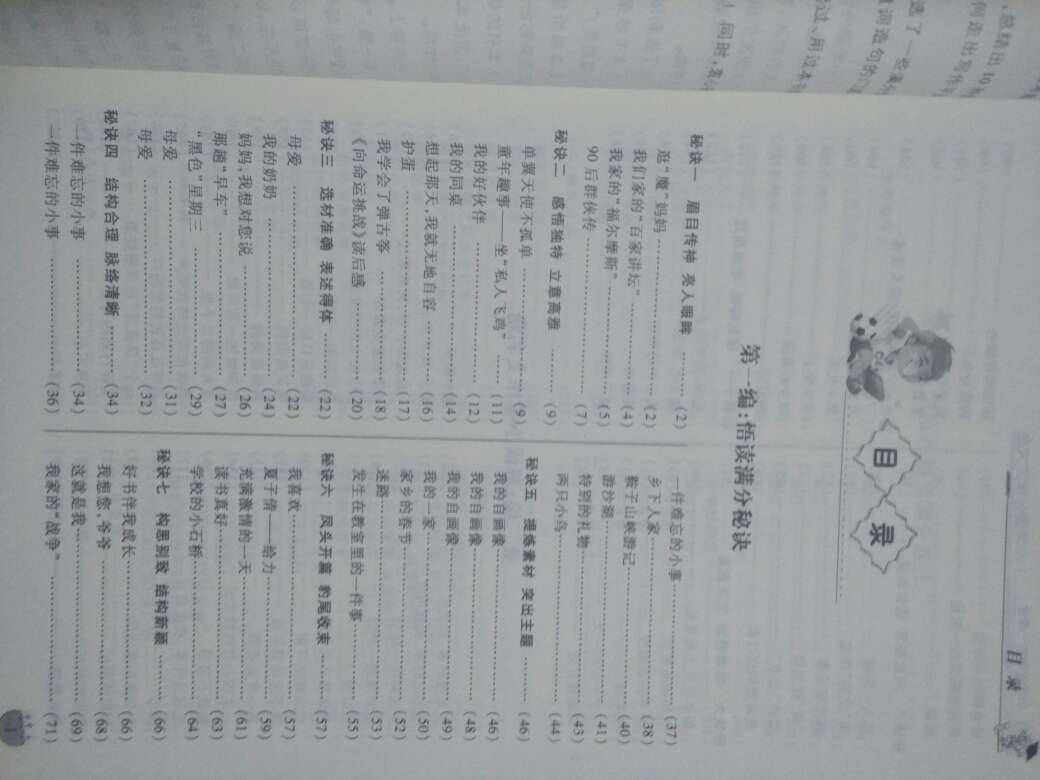 目录
目录
第一编:悟读满分秘诀
秘诀一 眉目传神 亮人眼眸 ……(2)
逛“魔”妈妈……(2)
我们家的“百家讲坛”……(4)
我家的“福尔摩斯”……(5)
90后群侠传……(7)
秘诀二 感悟独特 立意高雅 ……(9)
单翼天使不孤单……(9)
童年趣事——坐“私人飞鸡”……(11)
我的好伙伴……(12)
我的同桌……(14)
想起那天,我就无地自容……(16)
护蛋……(17)
我学会了弹古筝……(18)
《向命运挑战》读后感……(20)
秘诀三 选材准确 表述得体 ……(22)
母爱……(22)
我的奶奶……(24)
妈妈,我想对您说……(26)
那趟“早车”……(27)
“黑色”星期三……(29)
母爱……(31)
母爱……(32)
秘诀四 结构合理 脉络清晰 ……(34)
一件难忘的小事……(34)
一件难忘的小事……(36)
一件难忘的小事……(37)
乡下人家……(38)
鞍子山峡游记……(40)
游沙湖……(41)
特别的礼物……(43)
两只小鸟……(44)
秘诀五 提炼素材 突出主题 ……(46)
我的自画像……(46)
我的自画像……(48)
我的自画像……(49)
我的一家……(50)
家乡的春节……(52)
迷路……(53)
发生在教室里的一件事……(55)
秘诀六 凤头开篇 豹尾收束 ……(57)
我喜欢……(57)
夏子倩——给力……(59)
充满激情的一天……(61)
读书真好……(63)
学校的小石桥……(64)
秘诀七 构思别致 结构新颖 ……(66)
好书伴我成长……(66)
我想您,爷爷……(68)
这就是我……(69)
我家的“战争”……(71)
1
,总结出10
何走出写作
选了一些
词造句的
过、用过本
!同时,